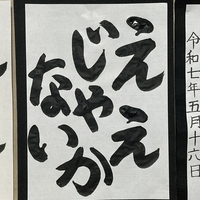 令和七年五月十六日
ええ
じゃ
ないか